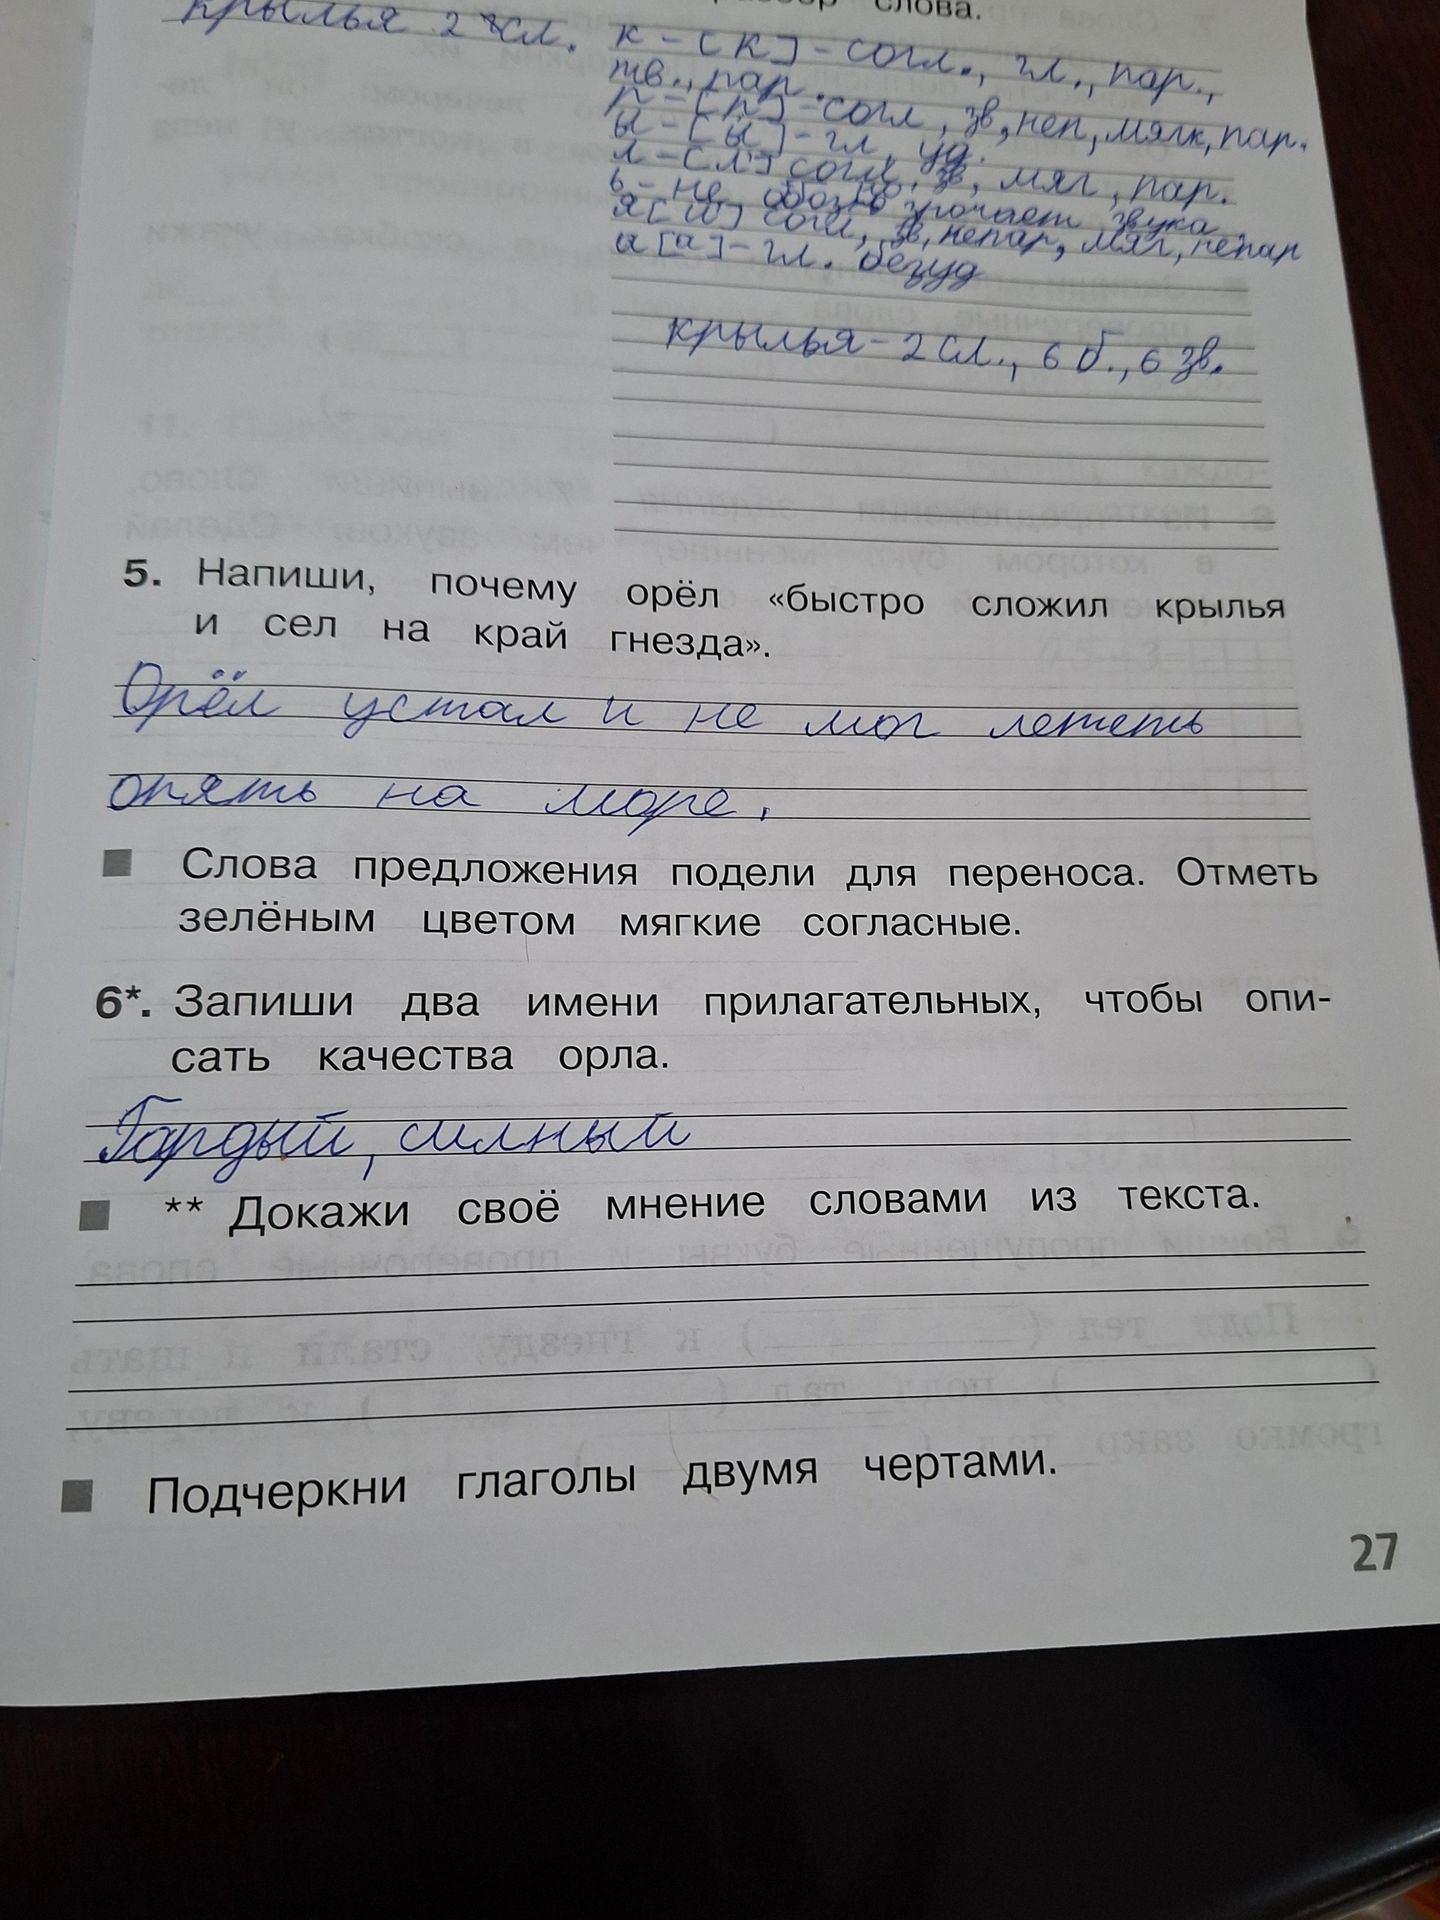 слова.
крылья 2 сл. к – [к] – согл., гл., пар.,
тв., пар.
р – [р] – согл, зв, неп, мягк, пар.
ы – [ы] – гл, уд.
л – [л] согл, зв, мяг, пар.
ь – не обозначает звука
я [й] согл, зв, непар, мяг, непар
а [а] – гл. безуд
крылья – 2 сл., 6 б., 6 зв.
5. Напиши, почему орёл «быстро сложил крылья
и сел на край гнезда».
Орёл устал и не мог лететь
опять на море.
Слова предложения подели для переноса. Отметь
зелёным цветом мягкие согласные.
6*. Запиши два имени прилагательных, чтобы опи-
сать качества орла.
Гордый, силный
** Докажи своё мнение словами из текста.
Подчеркни глаголы двумя чертами.
27